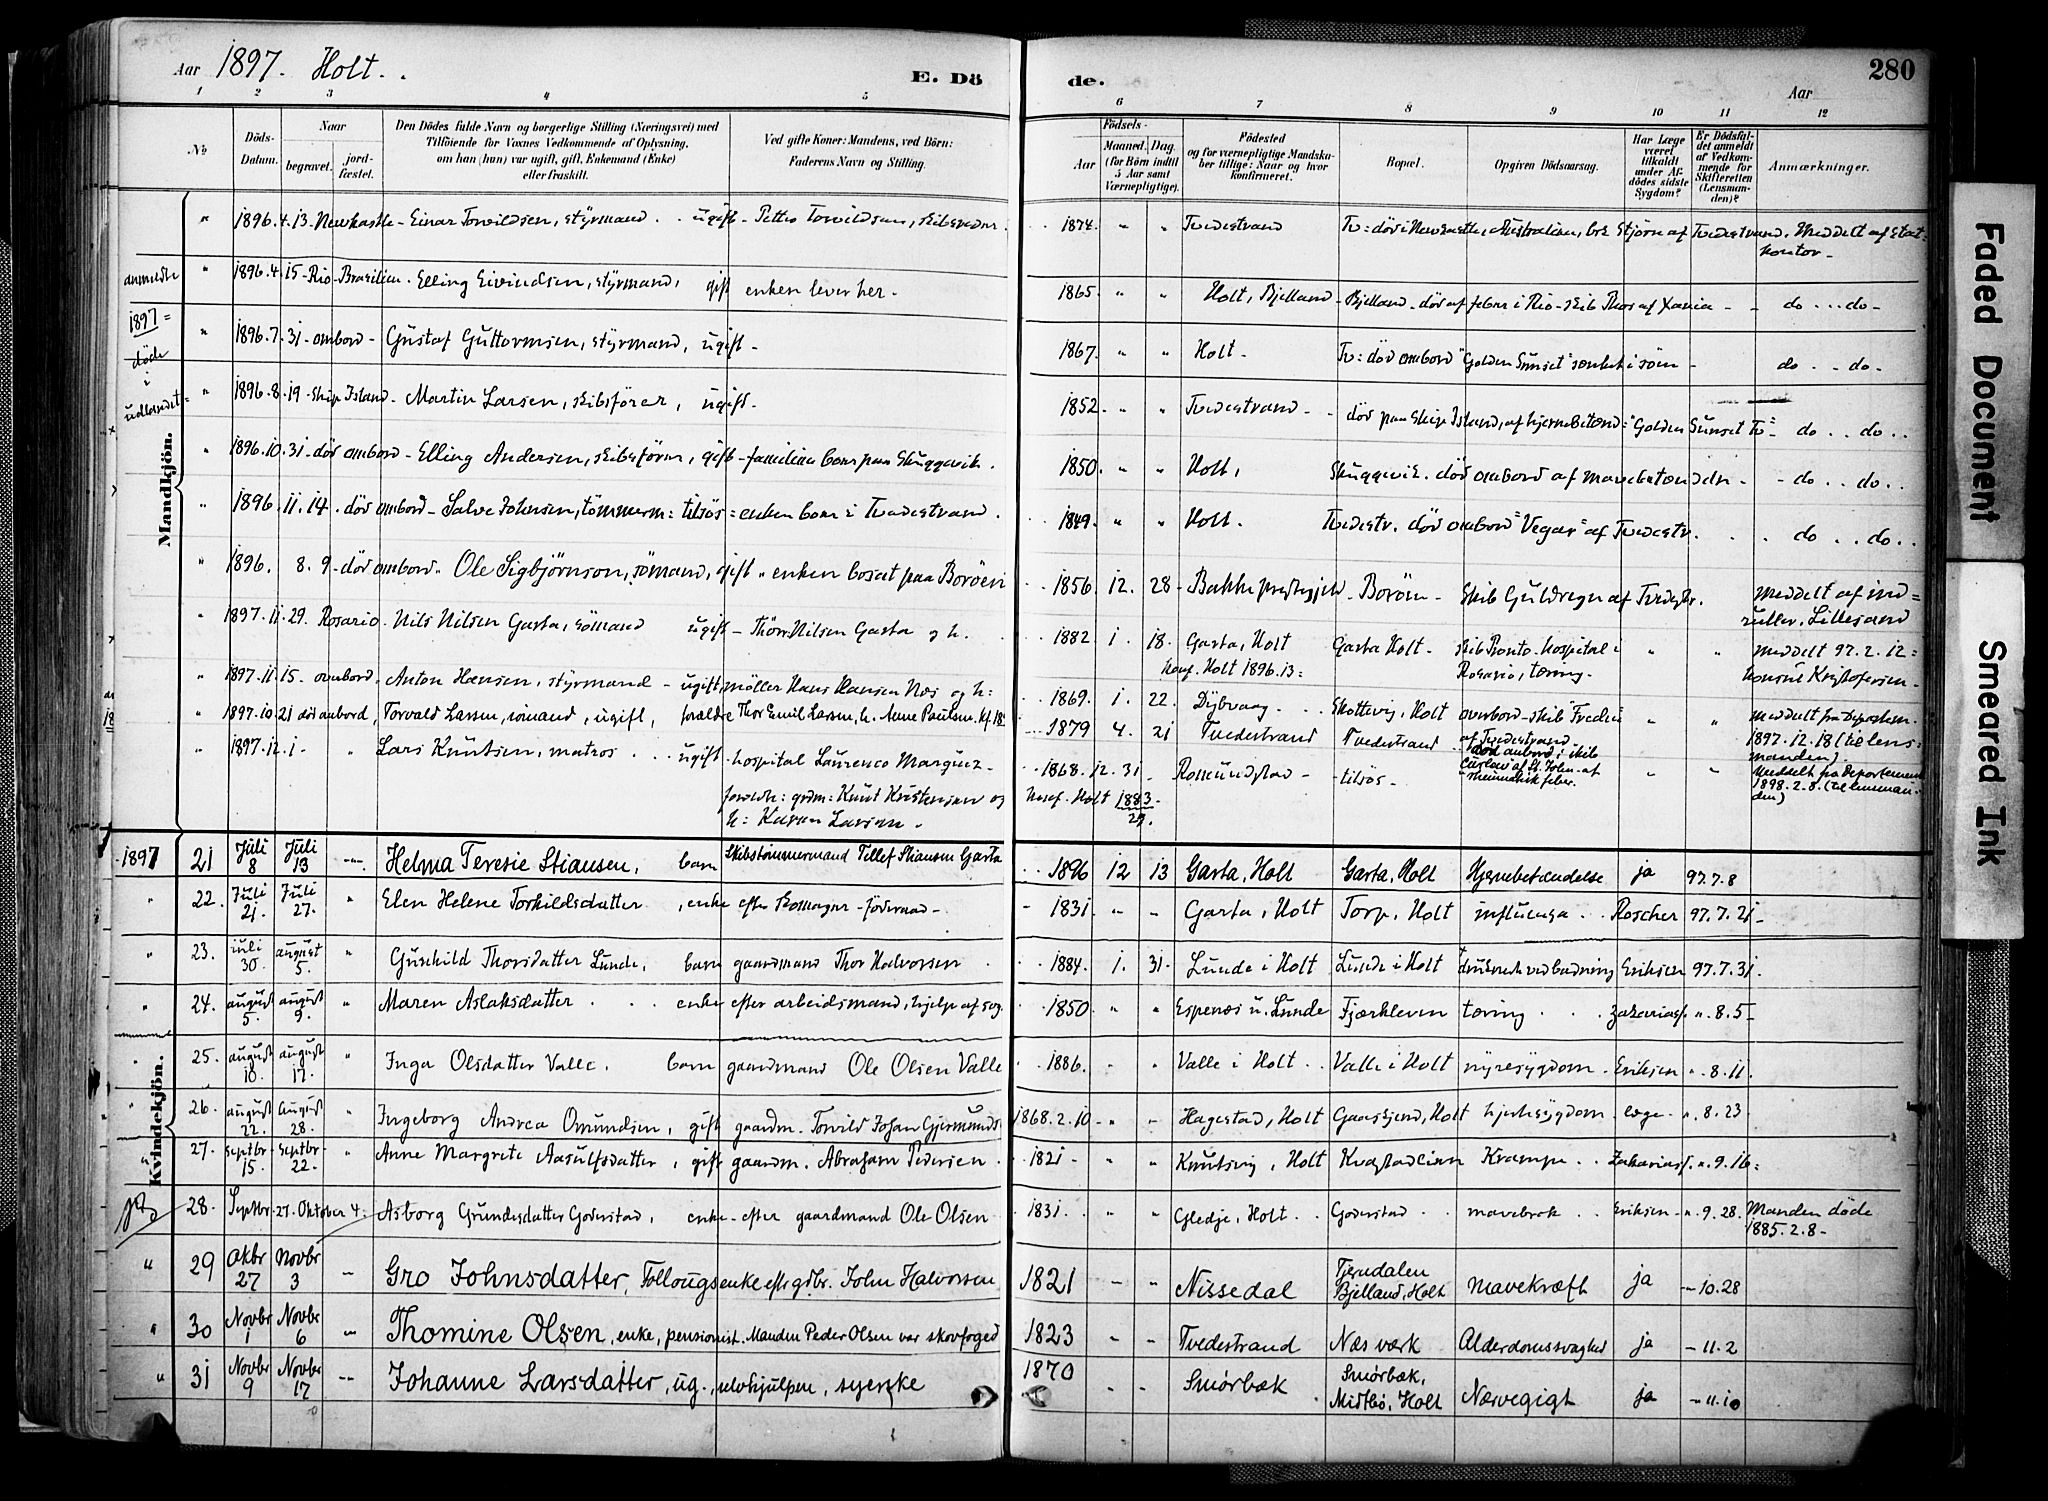 Aar 1897. Holt.
E. Dö de.
280
Aar
1 2 3 4 5 6 7 8 9 10 11 12
No
Döds-Datum.
Naar
begravet.
jord-fæstet.
Den Dödes fulde Navn og borgerlige Stilling (Næringsvei) med
Tilföiende for Voxnes Vedkommende af Oplysning,
om han (hun) var ugift, gift, Enkemand (Enke)
eller fraskilt.
Ved gifte Koner: Mandens, ved Börn:
Faderens Navn og Stilling.
Födsels-
Aar
Maaned. Dag.
(for Börn indtil
5 Aar samt
Værnepligtige).
Födested
og for værnepligtige Mandska-
ber tillige: Naar og hvor
konfirmeret.
Bopæl.
Opgiven Dödsaarsag.
Har Læge
været
tilkaldt
under Af-
dödes sidste
Sygdom?
Er Dödsfal-
det anmeldt
af Vedkom-
mende for
Skifteretten
(Lensman-
den)?
Anmærkninger.
anmeldte
1897 =
döde
i
udlandet =
Mandkjön.
" 1896. 4. 13. Newkastle - Einar Torvildsen, styrmand . . ugift - Petter Torvildsen, 1874. " " Tvedestrand Tv: död i Newcastle, Australien, Tvedestrand. Meddelt af Stat: kontor -
" 1896. 4. 15 - Rio - Brasilien. Elling Eivindsen, styrmand, gift enken lever her. 1865. " " Holt, Bjelland - Bjelland - död af feber i Rio - skib Thor af Xania - - do . . . do -
" 1896. 7. 31 - ombord - Gustaf Guttormsen, styrmand, ugift - 1867. " " Holt - Tv: död ombord "Golden Sunset" - do . . do -
" 1896. 8. 19 - Ship Island - Martin Larsen, skibsförer, ugift - 1852. " " Tvedestrand - - död paa Ship Island, af hjernebetænd: "Golden Sunset" Tv: - do . . do . .
" 1896. 10. 31 - död ombord - Elling Andersen, skibsförer, gift - familien bor paa Skuggevik. 1850. " " Holt, Skuggevik. död ombord af mavebetændelse - - do . . do . .
" 1896. 11. 14. död ombord - Salve Johnsen, tömmerm: tilsös = enken bor i Tvedestrand. 1849. " " Holt. Tvedestr. död ombord "Vegar" af Tvedestr. . . do . . do . .
" 1896. 8. 9 - död ombord " Ole Sigbjörnson, sömand, gift " enken bosat paa Boröen 1856. 12. 28 - Bakke - Boröen - Skib Guldregn af Tvedestr. meddelt af ind = ruller. Lillesand
" 1897. 11. 29. Rosario - Nils Nilsen Garta, sömand ugift - Nilsen Garta og h. 1882. 1. 18. Garta, Holt Konf. Holt 1896. 13 = Garta Holt - skib Pronto - hospital i Rosario, tæring. " " meddelt 97. 2. 12 =
" 1897. 11. 15 - overbord - Anton Hansen, styrmand - ugift, möller Hans Hansen Næs og h: 1869. 1. 22. Dybvaag . . . Skottevig, Holt overbord - skib af Tvedestrand " " meddelt fra Departem. 1897. 12. 18 (til lens= manden).
" 1897. 10. 21 död ombord, Torvald Larsen, sömand, ugift, foreldre Thor Emil Larsen, h. Anne Paulsen. 1879 4. 21 Tvedestrand Tvedestrand död ombord i skib
" 1897. 12. 1. " Lars Knutsen, matros . . . ugift. hospital Laurenco Marquez - foreldre: gdm: Knut Kristensen og h: Karen Larsen. 1868. 12. 31 - Konf. Holt 1883. 29. Romundstad - tilsös - rheumatisk feber. " " Meddelt fra Departement 1898. 2. 8. (til lensman-den)
Kvindekjön.
1897 21 Juli 8 Juli 13 - Helma Teresie Stiansen, barn Skibstömmermand Tellef Stiansen Garta 1896 12 13 Garta, Holt Garta, Holt Hjernebetændelse ja 97. 7. 8
" 22. Juli 21. Juli 27. " Elen Helene Torkildsdatter , enke efter - föderaad - 1831. " " Garta, Holt Torp, Holt influensa . . Roscher 97. 7. 21 -
" 23. juli 30. august 5. " Gunhild Thorsdatter Lunde, barn gaardmand Thor Halvorsen 1884. 1. 31. Lunde i Holt Lunde i Holt druknede ved badning Eriksen 97. 7. 31.
" 24. august 5. august 9. " Maren Aslaksdatter . . . enke efter arbeidsmand, hjelp af sog. 1850. " " Espenæs u. Lunde Fjærkleven tæring . . . Zakariass. ". 8. 5 -
" 25. august 10. august 17. " Inga Olsdatter Valle. barn gaardmand Ole Olsen Valle 1886. " " Valle i Holt . . Valle i Holt nyresygdom . Eriksen ". 8. 11.
" 26. august 22. August 28. " Ingeborg Andrea Omundsen, gift gaardm. Torvild Johan Gjermunds. 1868. 2. 10 - " - Hagestad, Holt Holt hjertesygdom . læge - ". 8. 23
" 27. Septbr. 15. Septbr. 22. " Anne Margrete Aasulfsdatter, gift gaardm. Abraham Pedersen . 1821 - " " Knutsvig, Holt Krampe . . Zakariass. ". 9. 16 =
28. Septbr. 27. Oktober 4. Asborg Gundersdatter Goderstad, enke - efter gaardmand Ole Olsen 1831. " " Gledje, Holt . . Goderstad . . mavebrok . . Eriksen - ". 9. 28. Manden döde 1885. 2. 8 -
" 29 Oktbr 27 Novbr 3 - Gro Johnsdatter, enke efter gdbr. John Halvorsen 1821 - " Nissedal Tjerndalen Bjelland, Holt mavekræft ja - 10. 28
" 30 Novbr 1 Novbr 6 - Thomine Olsen, enke, pensionist. Manden Peder Olsen var skovfoged 1823 - - Tvedestrand Næs værk Alderdomssvaghed ja - 11. 2
" 31 Novbr 9 Novbr 17 - Johanne Larsdatter, ug., selvhjulpen, syerske 1870 " " Smörbæk Smörbæk, Midtbö, Holt Nervegigt ja - " 11. 10
Faded Document
Smeared Ink